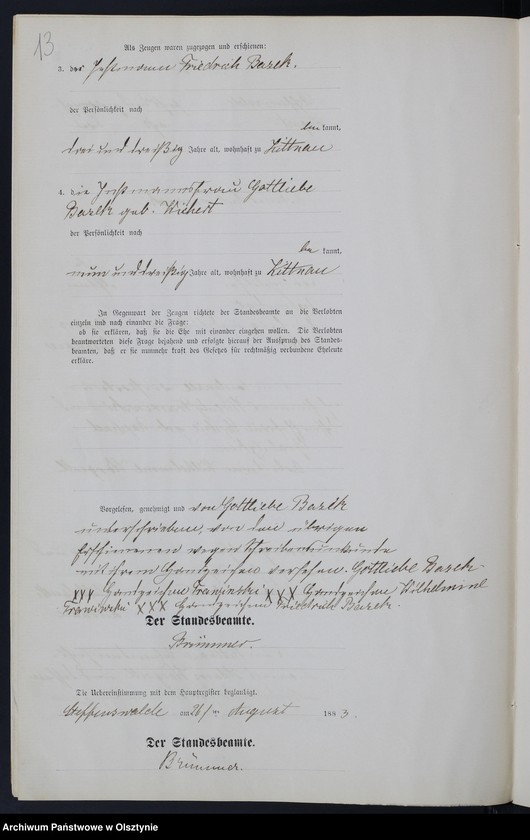 13
Als Zeugen waren zugezogen und erschienen:
3. der Instmann Friedrich Barek.
der Persönlichkeit nach
be kannt,
drei und dreißig Jahre alt, wohnhaft zu Littnau
4. die Instmannsfrau Gottliebe
Barek geb. Wichert
der Persönlichkeit nach
be kannt,
neun und dreißig Jahre alt, wohnhaft zu Littnau
In Gegenwart der Zeugen richtete der Standesbeamte an die Verlobten
einzeln und nach einander die Frage:
ob sie erklären, daß sie die Ehe mit einander eingehen wollen. Die Verlobten
beantworteten diese Frage bejahend und erfolgte hierauf der Ausspruch des Standes-
beamten, daß er sie nunmehr kraft des Gesetzes für rechtmäßig verbundene Eheleute
erkläre.
Vorgelesen, genehmigt und von Gottliebe Barek
unterschrieben, von den übrigen
Erschienenen wegen Schreibensunkunde
mit ihrem Handzeichen versehen. Gottliebe Barek
XXX Handzeichen XXX Handzeichen Wilhelmine
XXX Handzeichen Friedrich Barek.
Der Standesbeamte.
Brümmer.
Die Uebereinstimmung mit dem Hauptregister beglaubigt.
Steffenswalde am 26 ten August 1883.
Der Standesbeamte.
Brümmer.
Archiwum Państwowe w Olsztynie